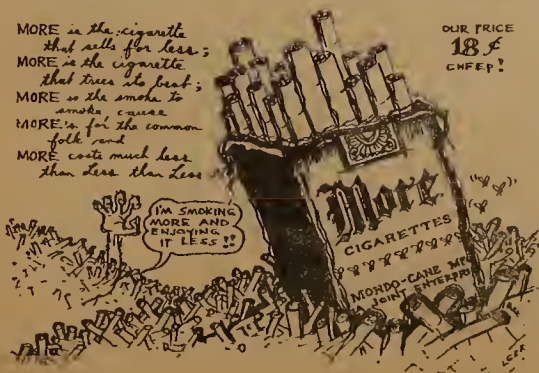 MORE is the cigarette
that sells for less;
MORE is the cigarette
that tries its best;
MORE is the smoke to
smoke cause
MORE's for the common
folk and
MORE costs much less
than Less than Less
OUR PRICE
18¢
CHEEP!
I'M SMOKING
MORE AND
ENJOYING
IT LESS!!
More
CIGARETTES
MONDO-CANE
A JOINT ENTERPRI